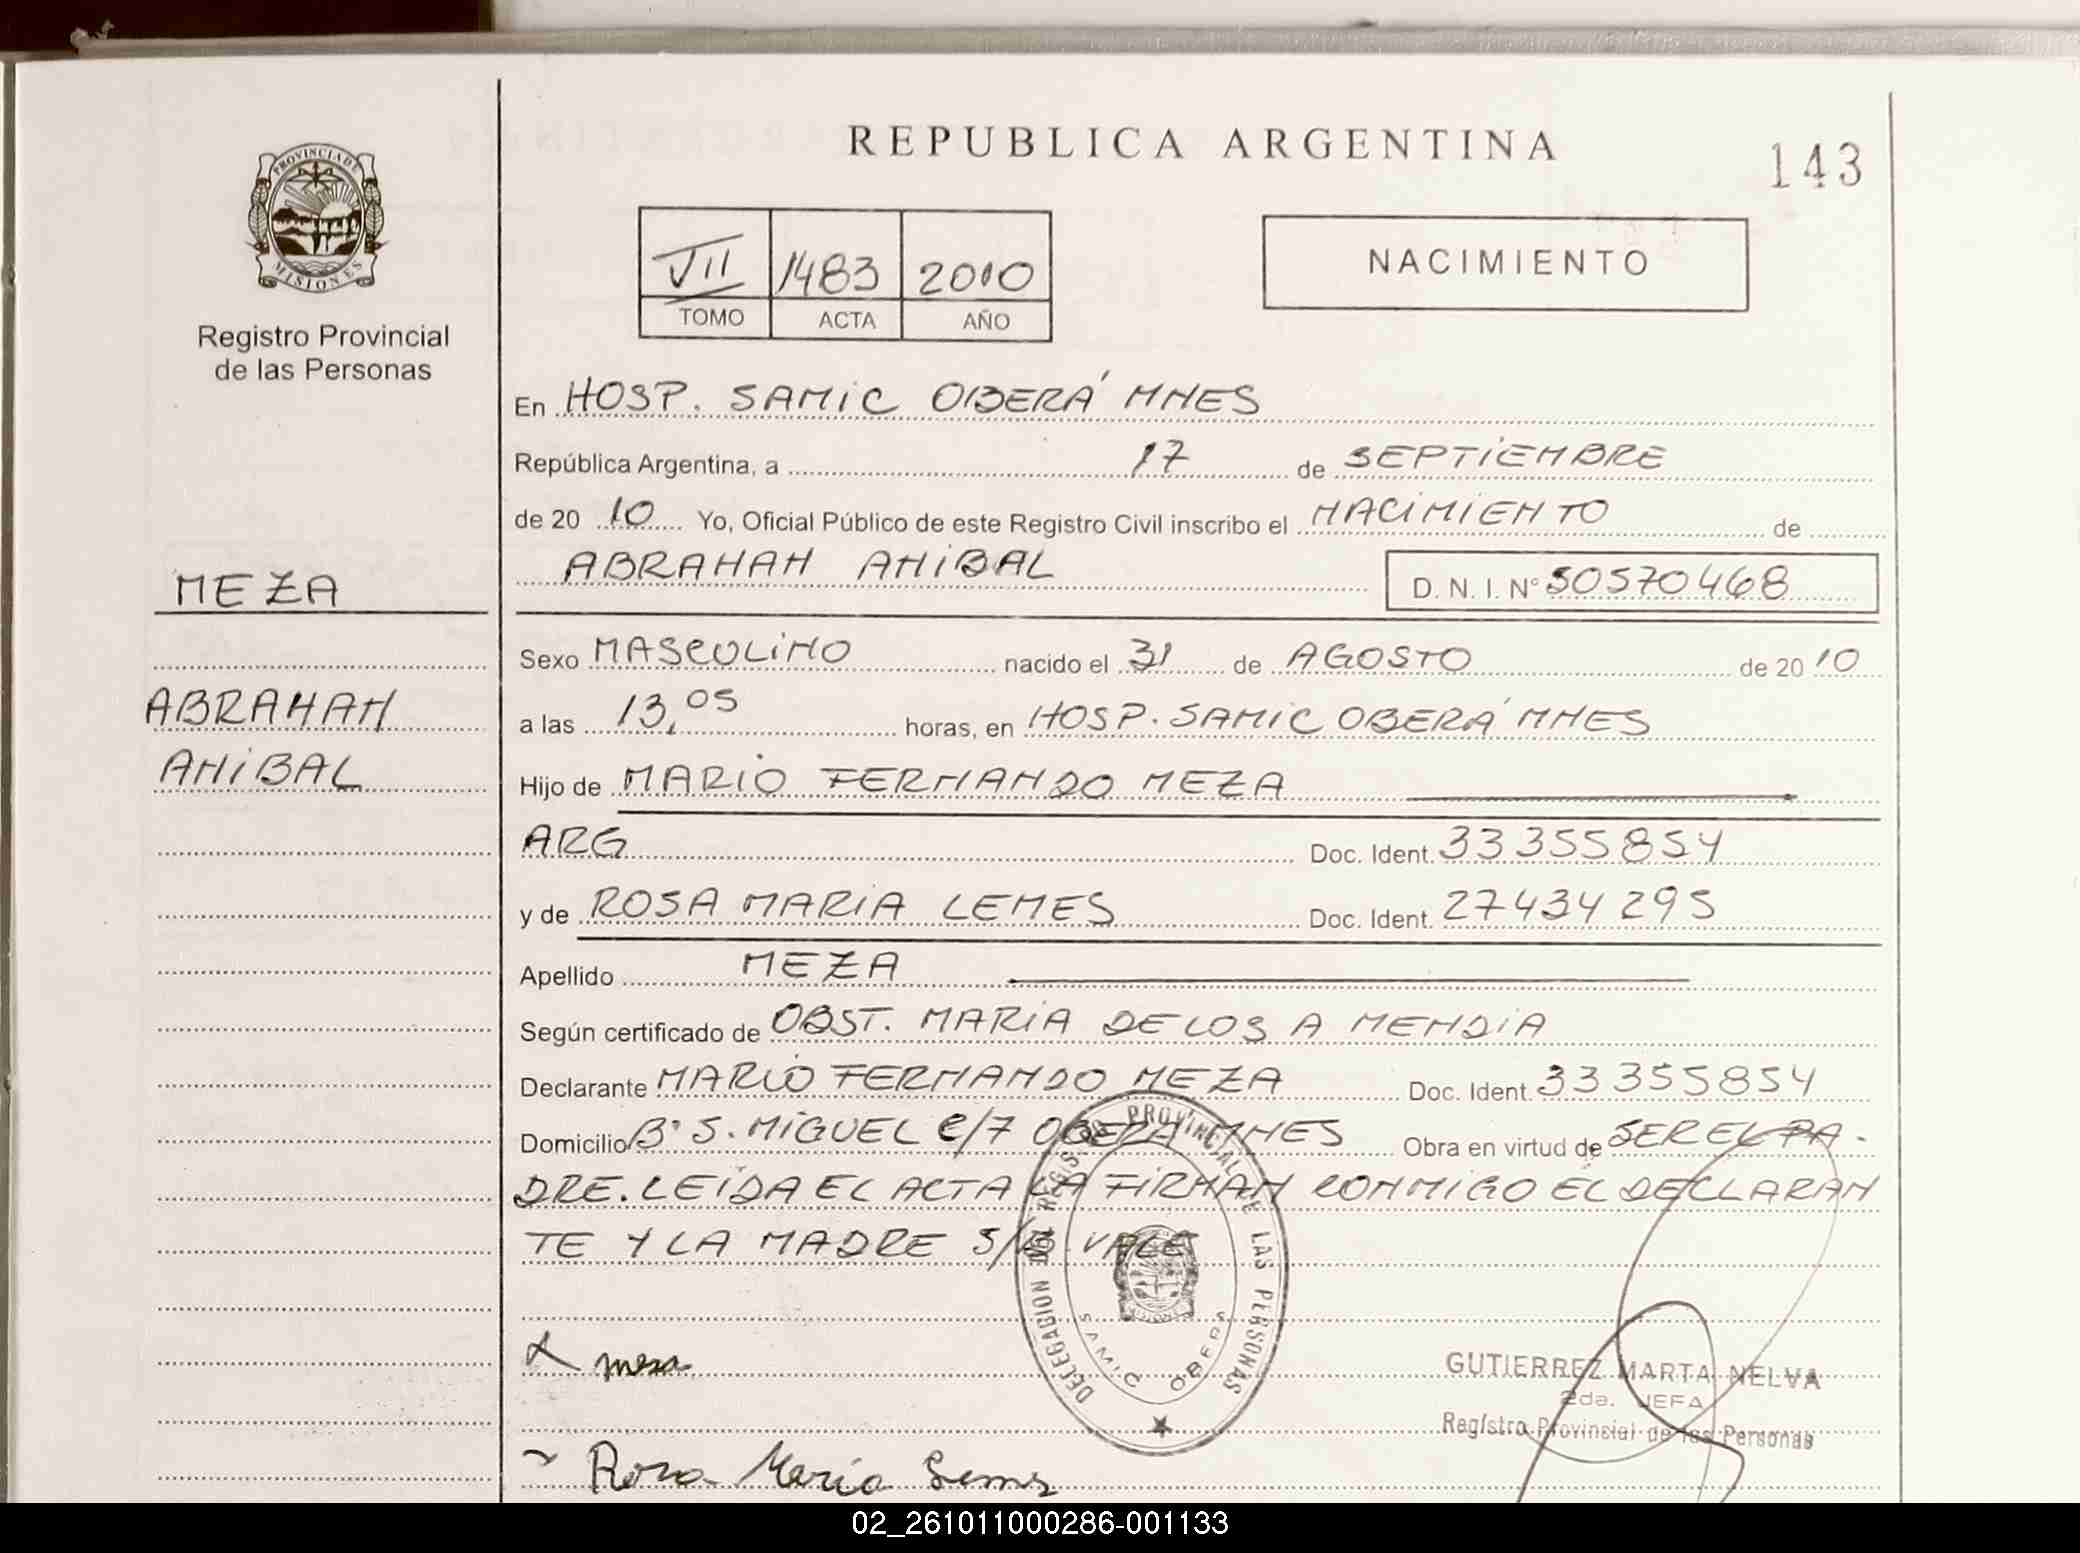 REPUBLICA ARGENTINA
143
PROVINCIA DE
MISIONES
Registro Provincial
de las Personas
VII 1483 2010
TOMO ACTA AÑO
NACIMIENTO
En HOSP. SAMIC OBERÁ MNES
República Argentina, a 17 de SEPTIEMBRE
de 20 10 Yo, Oficial Público de este Registro Civil inscribo el NACIMIENTO de
ABRAHAN ANIBAL D. N. I. Nº 50570468
MEZA
ABRAHAN
ANIBAL
Sexo MASCULINO nacido el 31 de AGOSTO de 20 10
a las 13,05 horas, en HOSP. SAMIC OBERÁ MNES
Hijo de MARIO FERNANDO MEZA
ARG Doc. Ident. 33355854
y de ROSA MARIA LEMES Doc. Ident. 27434295
Apellido MEZA
Según certificado de OBST. MARIA DE LOS A MENDIA
Declarante MARIO FERNANDO MEZA Doc. Ident. 33355854
Domicilio Bº S. MIGUEL C/7 OBERA MNES Obra en virtud de SER EL PA-
DRE. LEIDA EL ACTA LA FIRMAN CONMIGO EL DECLARAN
TE Y LA MADRE S/R VALE
DELEGACION DEL REGISTRO PROVINCIAL DE LAS PERSONAS
SAMIC OBERA
MISIONES
meza
Rosa María Lems
GUTIERREZ MARTA NELVA
2da. JEFA
Registro Provincial de las Personas
02_261011000286-001133